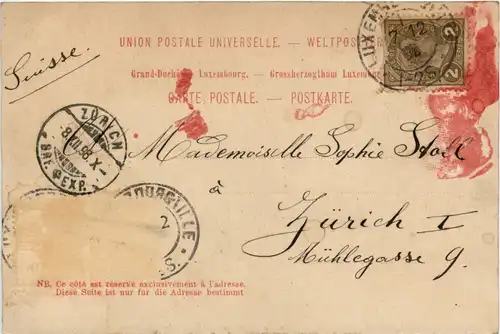 UNION POSTALE UNIVERSELLE. — WELTPOST
Grand-Duché Luxembourg. — Grossherzogthum Luxem
CARTE POSTALE. — POSTKARTE.
Suisse
LUXEM
7 12
98
2 2
ZÜRICH
8 XII 98 X-
BRF. EXP.
Mademoiselle Sophie Stoll
à
Zürich I
Mühlegasse 9.
BOURG VILLE
2
NB. Ce côté est réservé exclusivement à l'adresse.
Diese Seite ist nur für die Adresse bestimmt